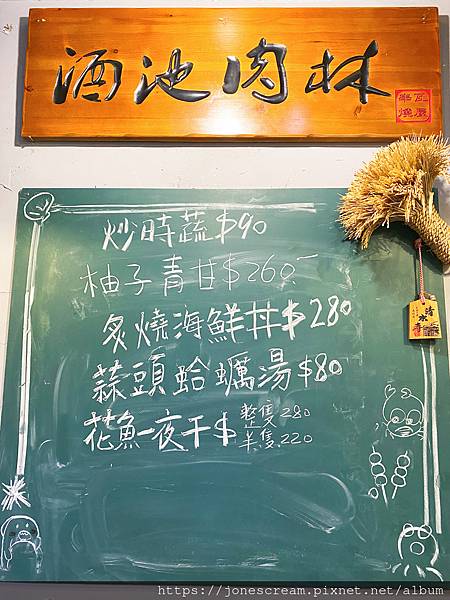 酒池肉林
串燒
炒時蔬$90
柚子青甘$260.-
炙燒海鮮丼$280
蒜頭蛤蠣湯$80
花魚一夜干$ 整隻.280
半隻.220
清水寺
https://jonescream.pixnet.net/album